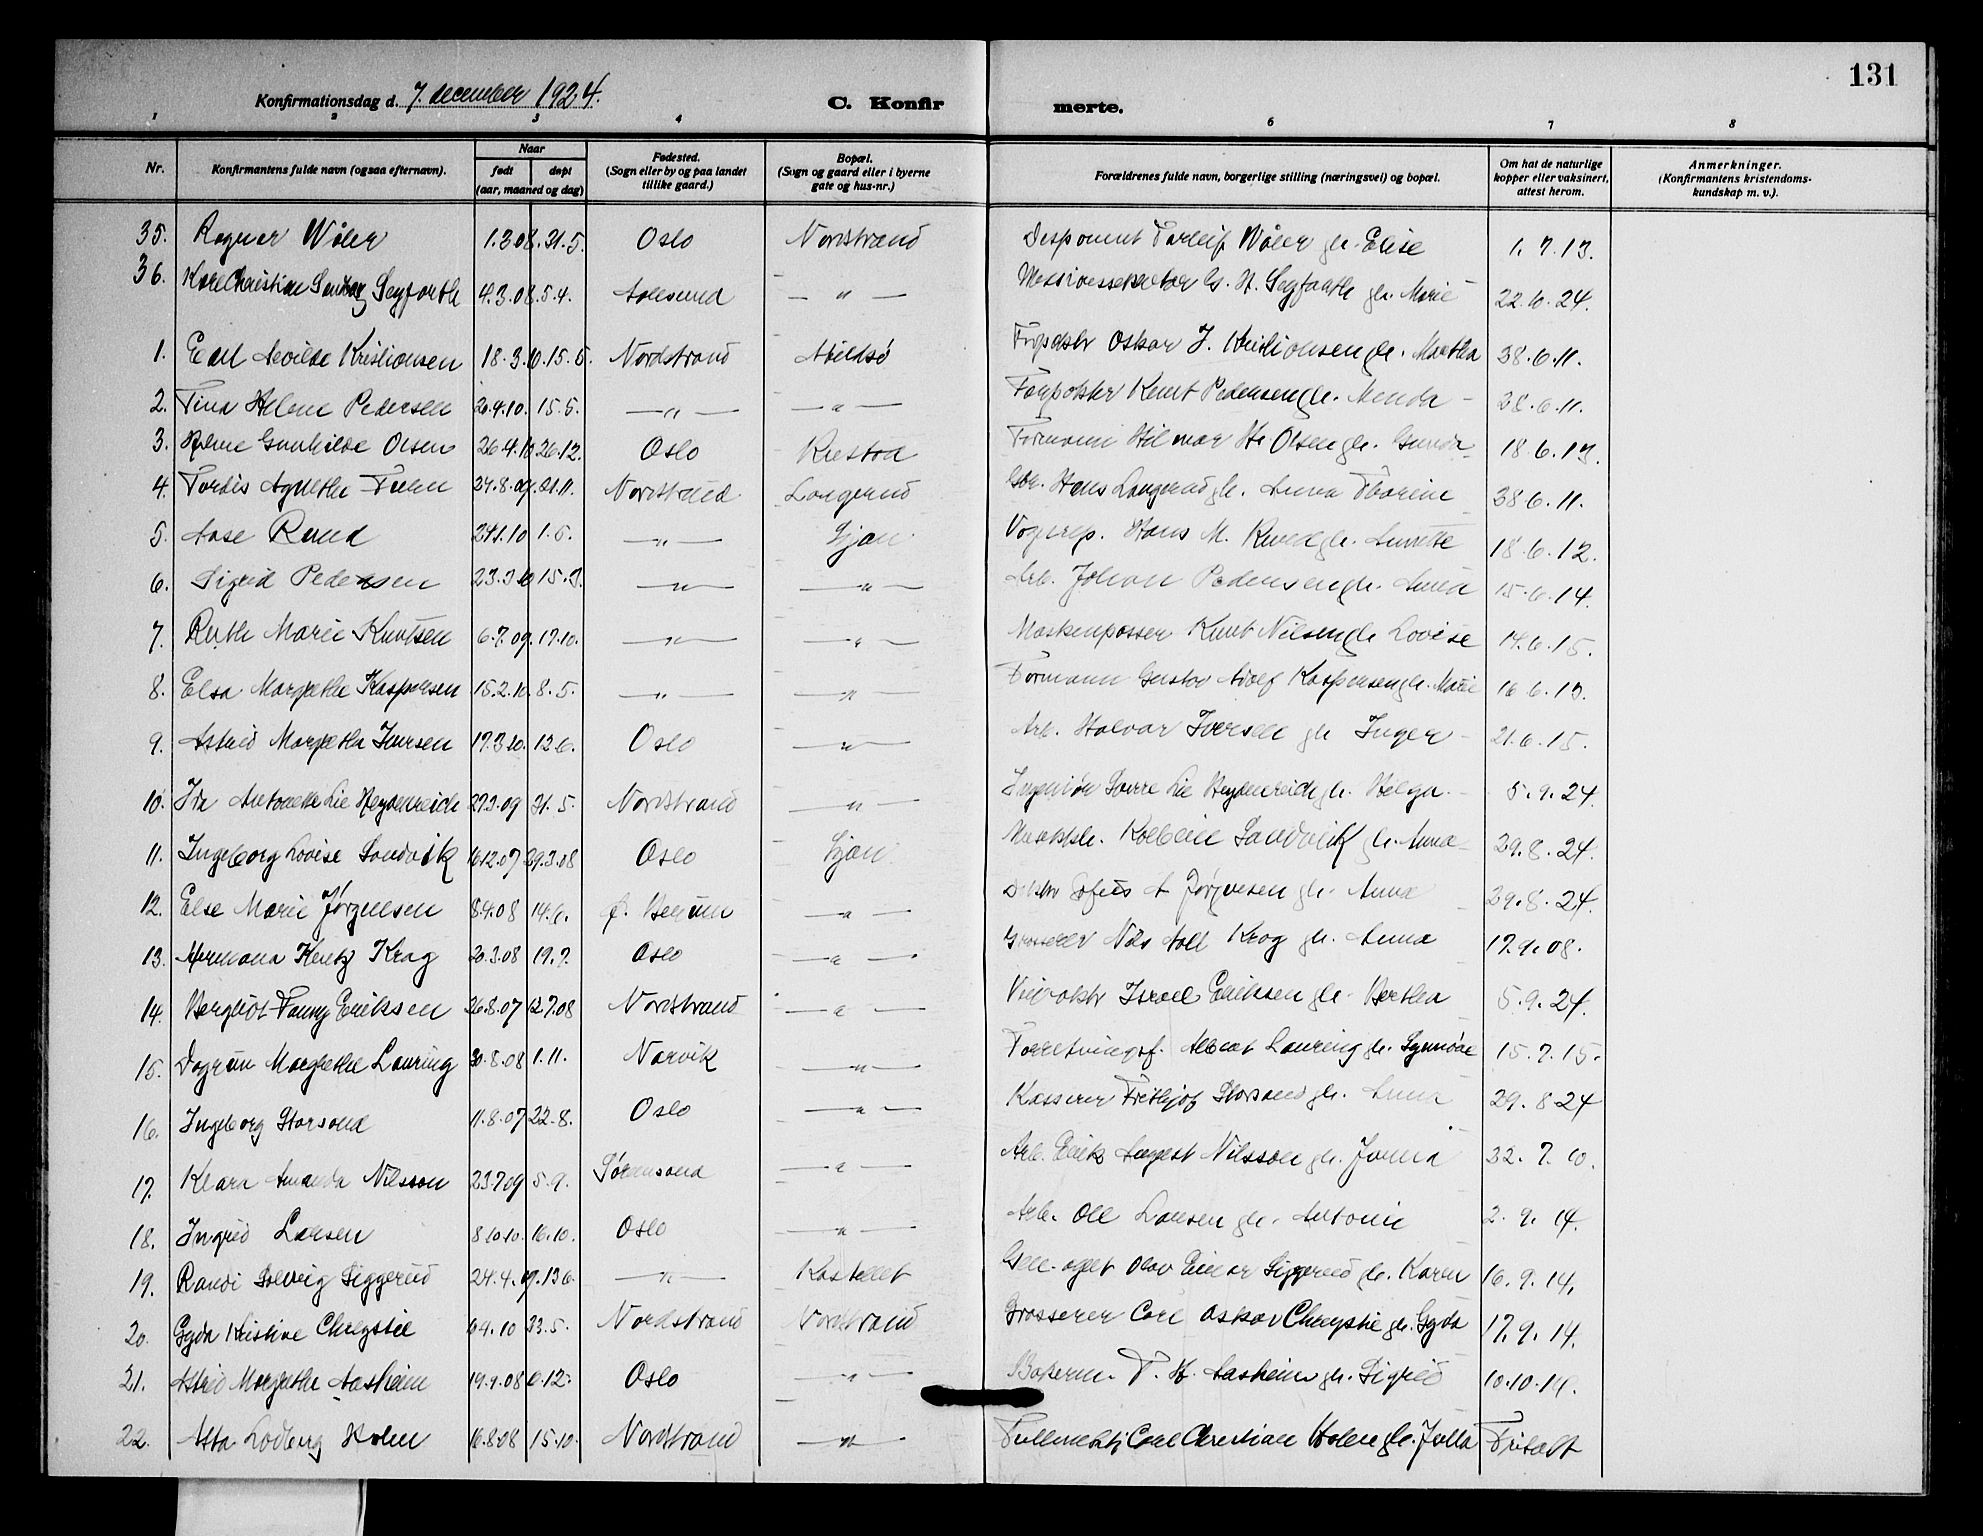 131
Konfirmationsdag d. 7 december 1924.
C. Konfirmerte.
1 2 3 4 6 7 8
Nr.
Konfirmantens fulde navn (ogsaa efternavn).
Naar
født døpt
(aar, maaned og dag)
Fødested.
(Sogn eller by og paa landet
tillike gaard.)
Bopæl.
(Sogn og gaard eller i byerne
gate og hus-nr.)
Forældrenes fulde navn, borgerlige stilling (næringsvei) og bopæl.
Om hat de naturlige
kopper eller vaksinert,
attest herom.
Anmerkninger.
(Konfirmantens kristendoms-
kundskap m. v.).
35. Ragnar Wøler 1.3.08. 31.5. Oslo Nordstrand Disponent Torleif Wøler gh. Elise 1.7.13.
36. Karl Christian Seyfarth 4.3.08. 5.4. Aalesund — " — G. H. Seyfarth gh. Marie 22.10.24.
1. Kristiansen 18.3.10. 15.5. Nordstrand Abildsø Oskar J. Kristiansen gh. Martha 28.6.11.
2. Tina Helene Pedersen 20.4.10. 15.5. — " — — " — Knut Pedersen gh. 28.6.11.
3. Gunhilde Olsen 26.4.10 26.12. Oslo Formann Hilmar Olsen gh. 18.6.13.
4. Tordis Agnethe 24.8.09. 21.11. Nordstrand Langerud Hans Langerud gh. Anna Thorine 28.6.11.
5. Aase Ruud 24.1.10 1.5. — " — Ljan Hans M. Ruud gh. Annette 18.6.12.
6. Sigrid Pedersen 23.3.10 15.3. — " — — " — Arb. Johan Pedersen gh. 15.6.14.
7. Ruth Marie Knutsen 6.7.09. 17.10. — " — — " — Maskenpasser Knut Nilsen gh Lovise 14.6.15.
8. Elsa Margrethe Kaspersen 15.2.10. 8.5. — " — — " — Formann Gustav Adolf Kaspersen gh. Marie 16.6.13.
9. Astrid Margrethe Iversen 17.3.10. 12.6. Oslo — " — Arb. Halvar Iversen gh Inger 21.6.15.
10. Ida Antonette Lie Heydenreich 27.3.09 31.5. Nordstrand — " — Ingeniør Sverre Lie Heydenreich gh. Helga 5.9.24.
11. Ingeborg Lovise Sandvik 16.12.07 29.3.08 Oslo Ljan Sandvik gh. Anna 29.8.24.
12. Else Marie Jørgensen 8.4.08 14.6. — " — Sofus A Jørgensen gh. Anna 29.8.24.
13. Hermana Krag 20.3.08 19.7. Oslo — " — Grosserer Nils Aall Krag gh. Anna 17.9.08.
14. Bergliot Fanny Eriksen 26.8.07 12.7.08 Nordstrand — " — Israel Eriksen gh. Berthea 5.9.24.
15. Dagrun Margrethe Lauring 30.8.08 1.11. Narvik — " — Forretningsf. Albert Lauring gh. Synnöve 15.7.15.
16. Ingeborg Storsand 11.8.07 22.8. Oslo — " — Kasserer Frithjof Storsand gh. Anna 29.8.24
17. Klara Amanda Nilsson 23.7.09 5.9. — " — Arb. Erik August Nilsson gh. 22.7.10.
18. Ingrid Larsen 8.10.10. 16.10. Oslo — " — Arb. Ole Larsen gh. Antonie 2.9.14.
19. Randi Solveig Siggerud 24.4.09. 13.6. — " — Kastellet Olav Einar Siggerud gh. Karen 16.9.14.
20. Gyda Kristine Chrystie 6.4.10 23.5. Nordstrand Nordstrand Grosserer Carl Oskar Chrystie gh. Gyda 17.9.14.
21. Astrid Margrethe Aasheim 19.9.08 6.12. Oslo — " — T. H. Aasheim gh. Sigrid 10.10.14.
22. Asta Lodberg Holm 16.8.08 15.10. Nordstrand — " — Carl Christian Holm gh. Julla Fritalt